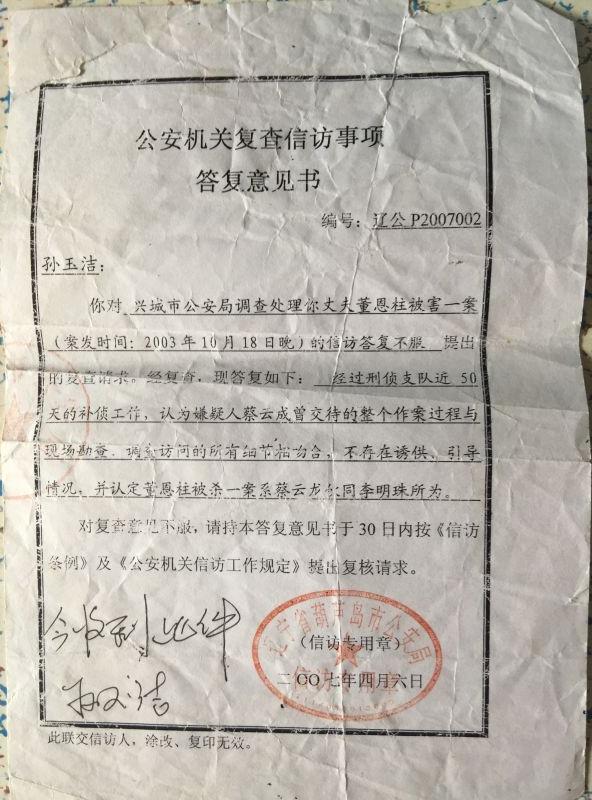 公安机关复查信访事项
答复意见书
编号：辽公P2007002
孙玉洁：
你对 兴城市公安局调查处理你丈夫董恩柱被害一案
（案发时间：2003年10月18日晚）的信访答复不服 提出
的复查请求。经复查，现答复如下： 经过刑侦支队近 50
天的补侦工作，认为嫌疑人蔡云成曾交待的整个作案过程与
现场勘查、调查访问的所有细节相吻合，不存在诱供、引导
情况，并认定董恩柱被杀一案系蔡云龙伙同李明珠所为。
对复查意见不服，请持本答复意见书于 30 日内按《信访
条例》及《公安机关信访工作规定》提出复核请求。
今收到此件
孙玉洁
辽宁省葫芦岛市公安局
（信访专用章）
信访专用章
二〇〇七年四月六日
此联交信访人，涂改、复印无效。